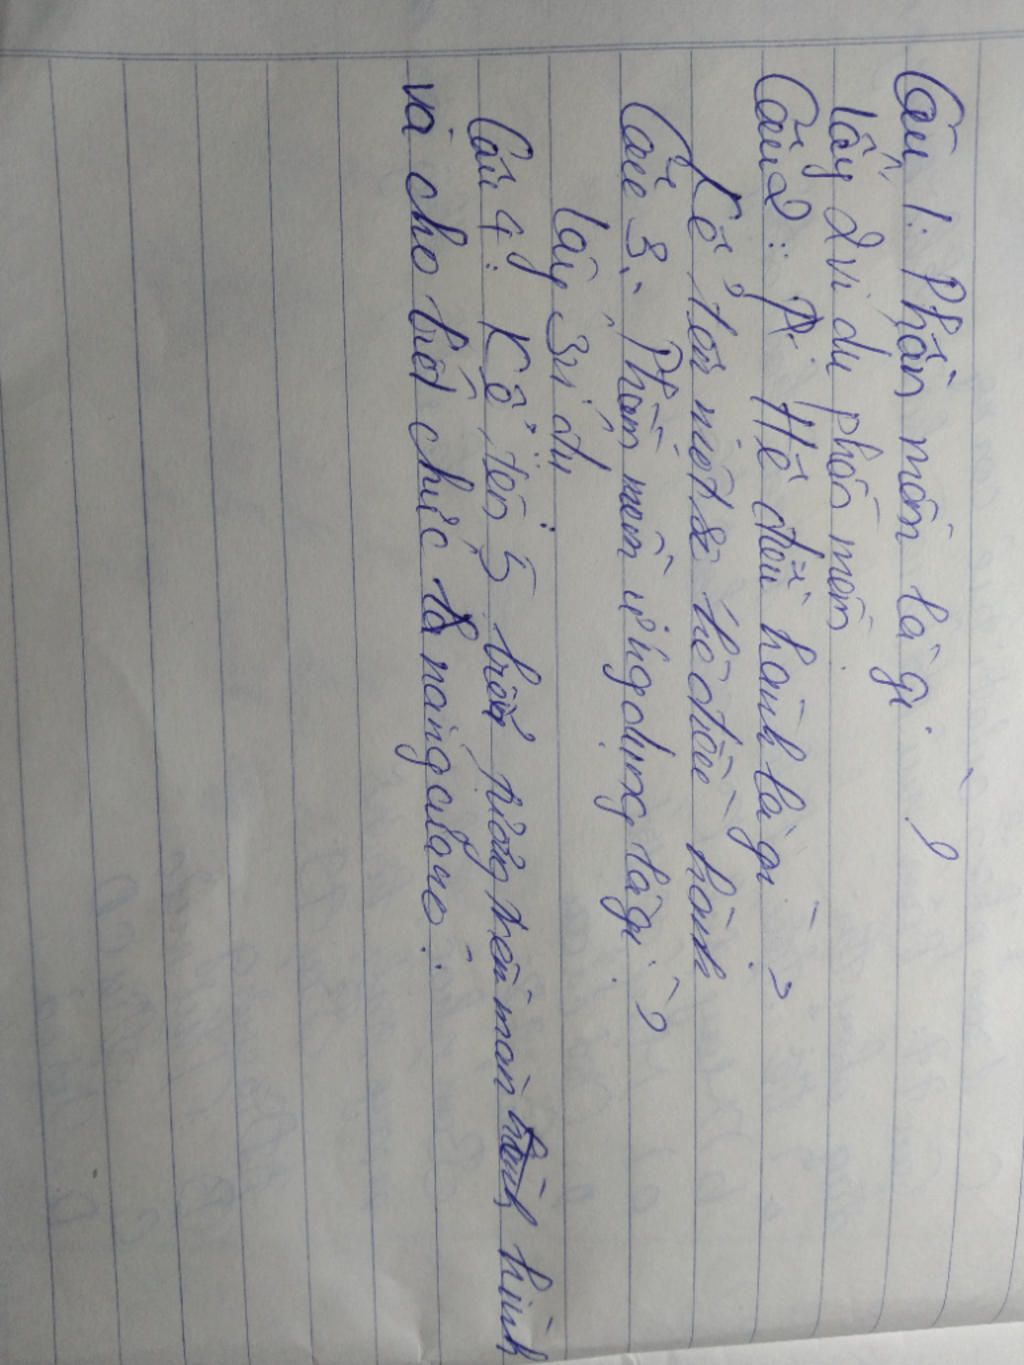 Câu 1: Phần mềm là gì ?
lấy 2 ví dụ phần mềm.
Câu 2: Hệ điều hành là gì ?
Kể tên một số hệ điều hành.
Câu 3: Phần mềm ứng dụng là gì ?
lấy 3 ví dụ.
Câu 4: Kể tên 5 biểu tượng trên màn hình
và cho biết chức năng